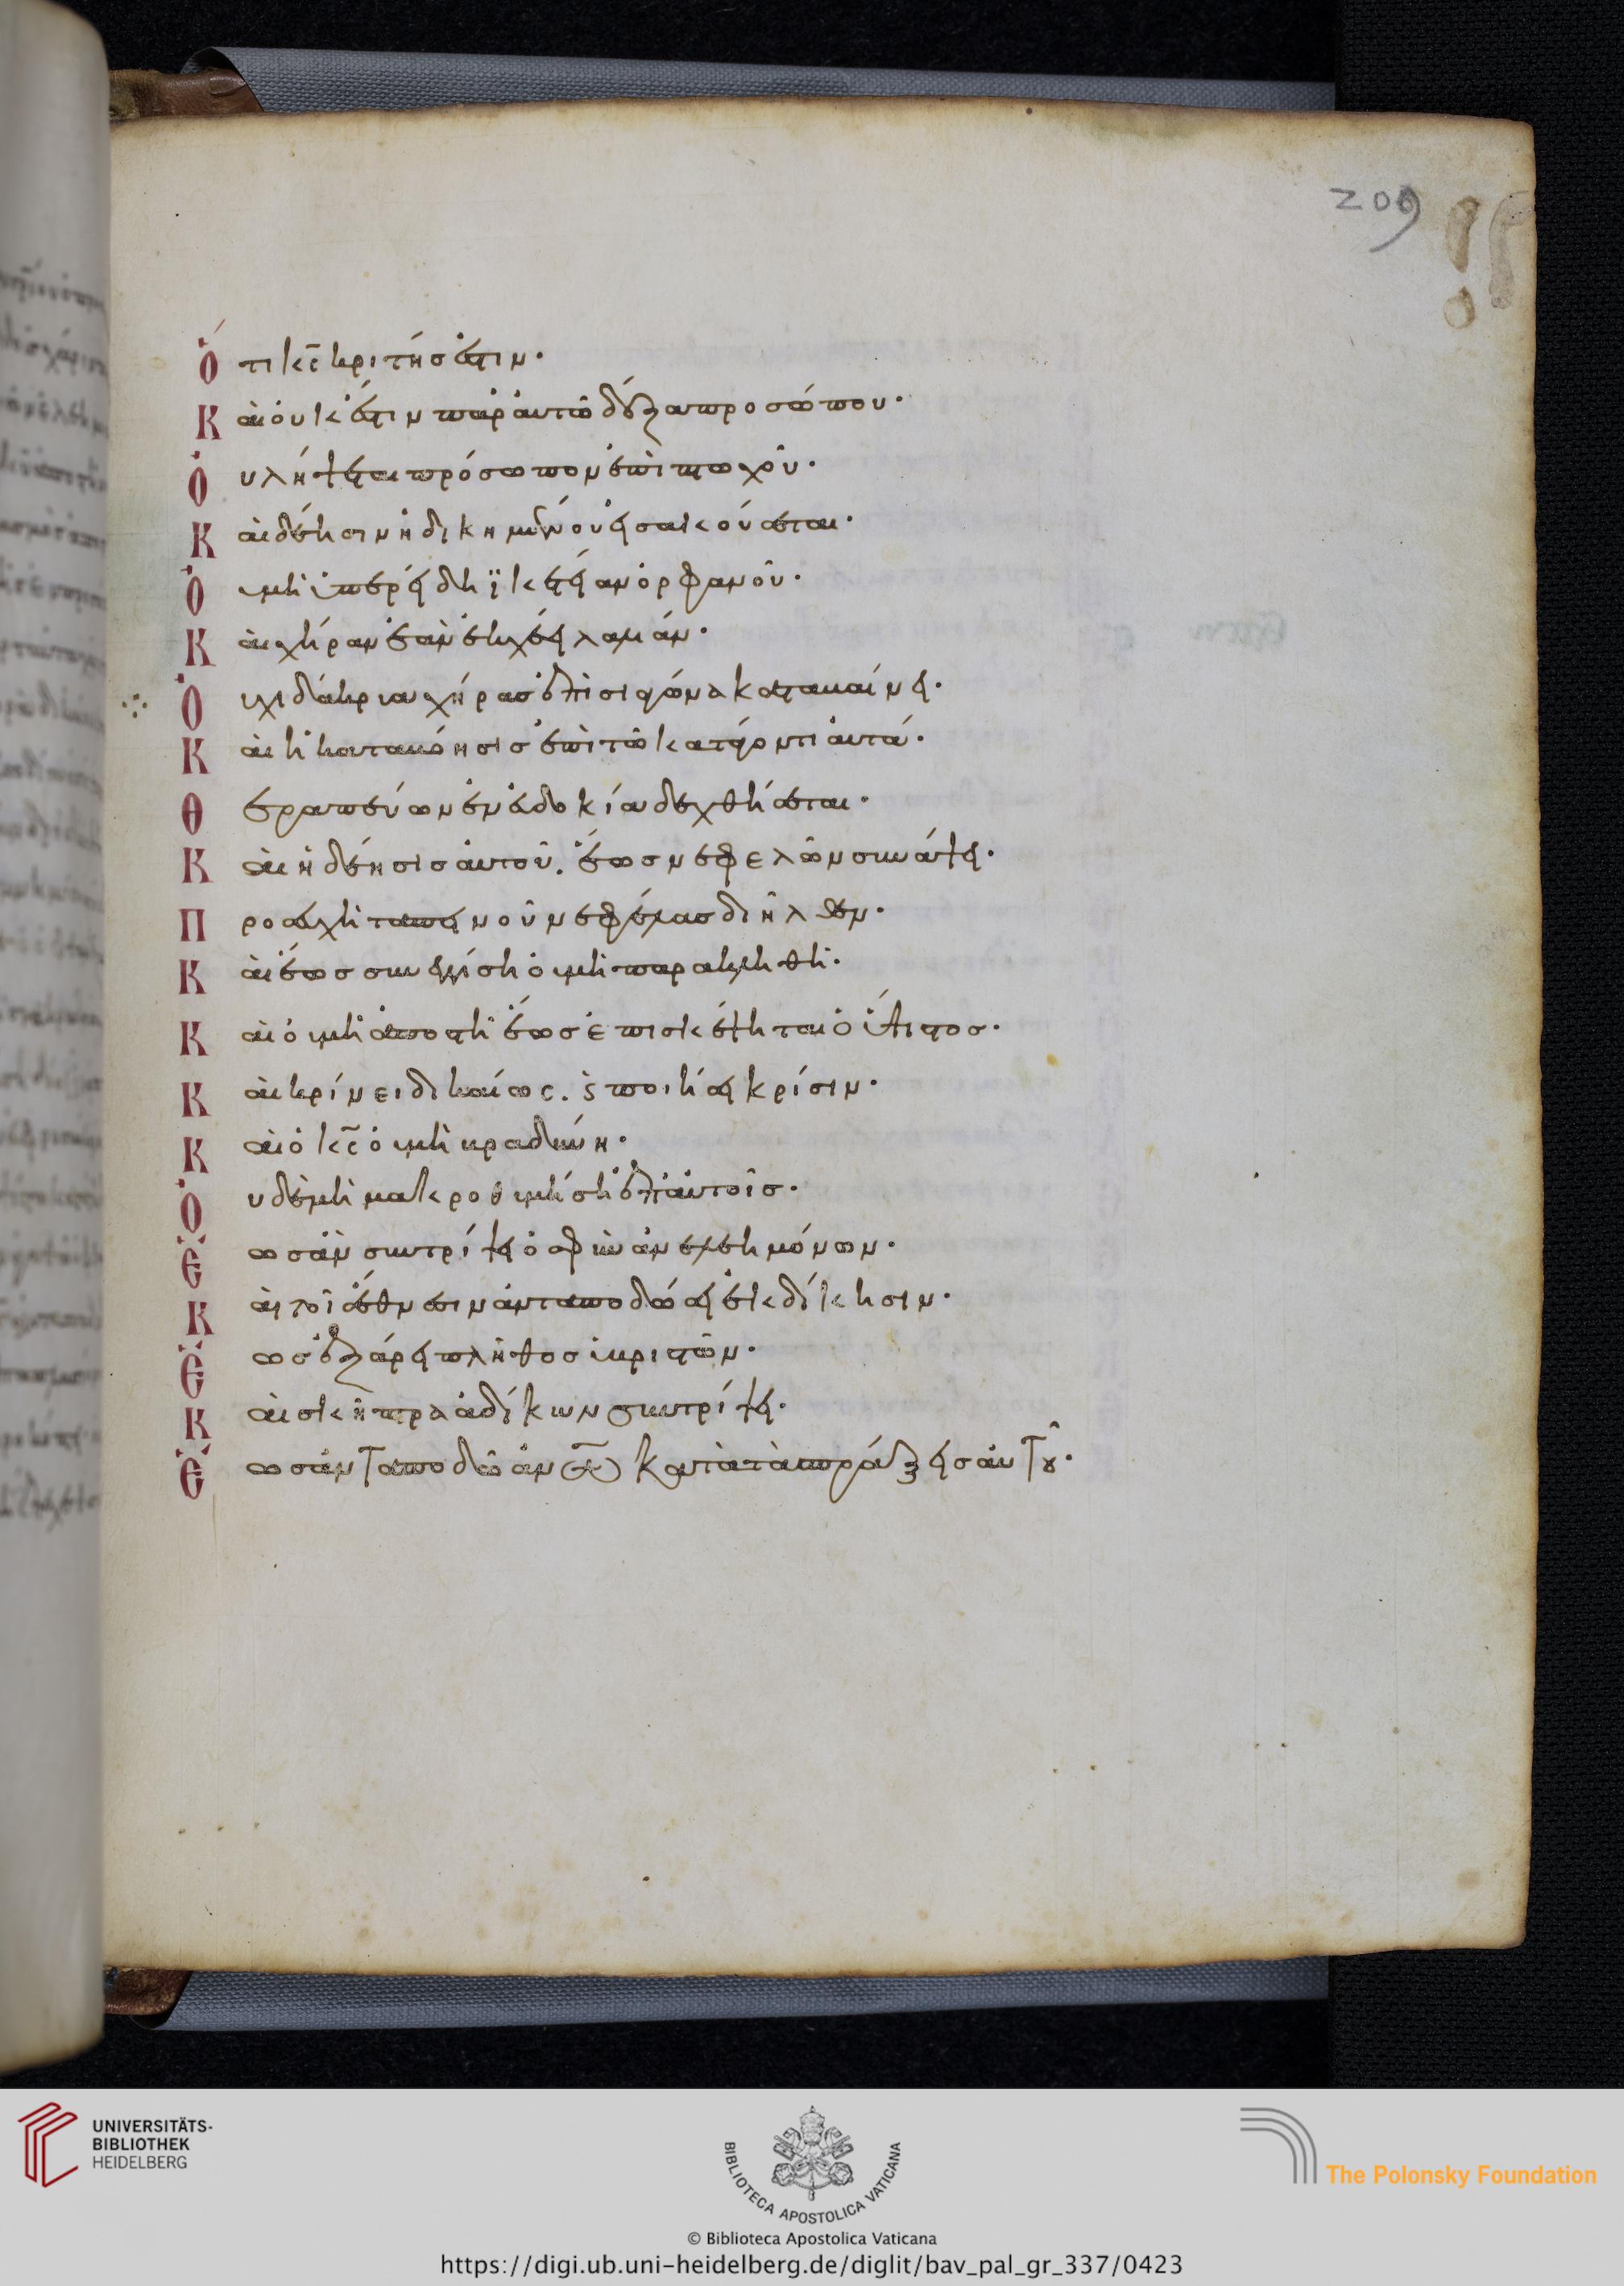 209
Ὅτι κ̅ς̅ κριτής ἐστιν·
Καὶ οὐκ ἔστιν παρ' αὐτῶ δόξα προσώπου·
Οὐ λήψεται πρόσωπον ἐπὶ πτωχοῦ·
Καὶ δέησιν ἠδικημένου εἰσακούσεται·
Οὐ μὴ ὑπερείδη ϊκετείαν ὀρφανοῦ·
Καὶ χήραν ἐὰν ἐκχέει λαλιάν·
Οὐχὶ δάκρυα χήρας ἐπὶ σιαγόνα καταβαίνει·
Καὶ ἡ καταβόησις ἐπὶ τῶ καταγόντι αὐτά·
Θεραπεύων ἐν εὐδοκία δεχθήσεται·
Καὶ ἡ δέησις αὐτοῦ. ἕως νεφελῶν συνάψει·
Προσευχὴ ταπεινοῦ νεφέλας διῆλθεν·
Καὶ ἕως συνεγγίση οὐ μὴ παρακληθῆ·
Καὶ οὐ μὴ ἀποστῆ ἕως ἐπισκέψηται ὁ ὕψιστος·
Καὶ κρίνει δικαίως. ϗ ποιήσει κρίσιν·
Καὶ ὁ κ̅ς̅ οὐ μὴ βραδύνη·
Οὐδὲ μὴ μακροθυμήση ἐπ' αὐτοῖς·
Ἕως ἂν συντρίψει ὀσφὺν ἀνελεημόνων·
Καὶ τοῖς ἔθνεσιν ἀνταποδώσει ἐκδίκησιν·
Ἕως ἐξάρει πλῆθος ὑβριστῶν·
Καὶ σκῆπτρα ἀδίκων συντρίψει·
Ἕως ἀνταποδῶ ἀν̅ω̅ κατὰ τὰς πράξεις αὐτοῦ·
UNIVERSITÄTS-
BIBLIOTHEK
HEIDELBERG
BIBLIOTECA APOSTOLICA VATICANA
The Polonsky Foundation
© Biblioteca Apostolica Vaticana
https://digi.ub.uni-heidelberg.de/diglit/bav_pal_gr_337/0423